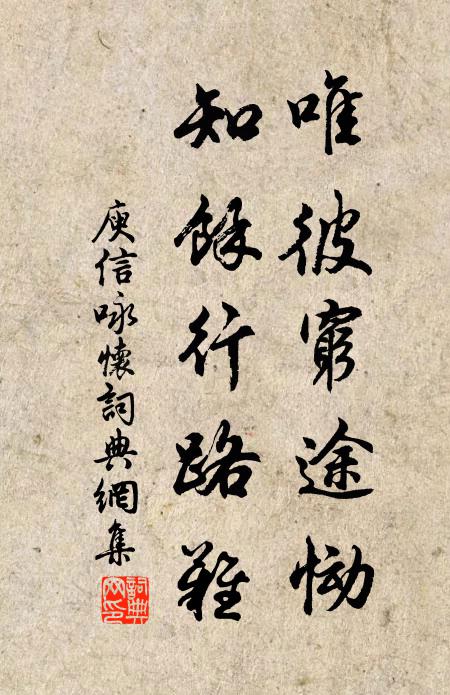 唯彼窮途慟
知餘行路難
庾信咏懷詞典網集
詞典網印